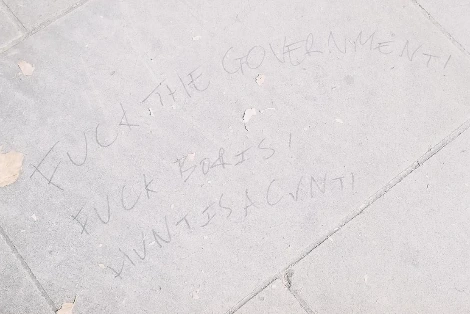 FUCK THE GOVERNMENT!
FUCK BORIS!
HUNT IS A CUNT!